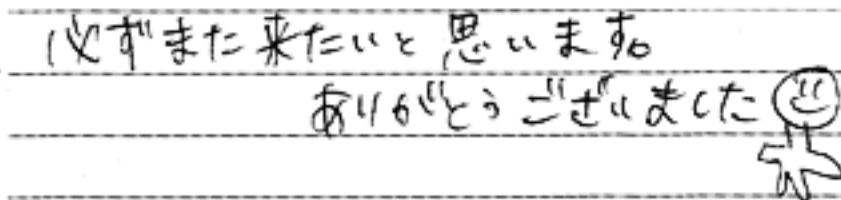 必ずまた来たいと思います。
ありがとうございました